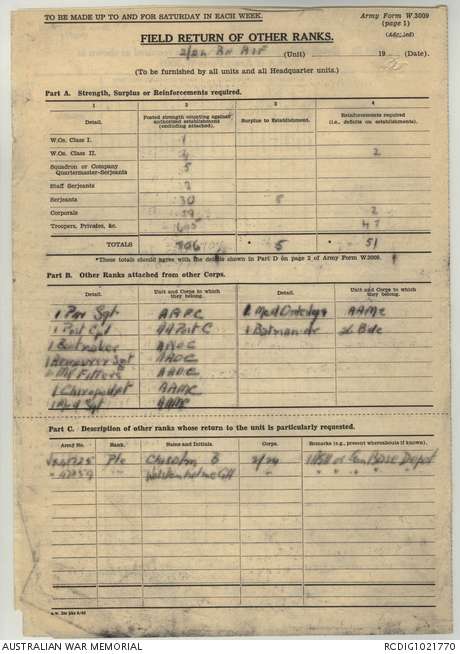 TO BE MADE UP TO AND FOR SATURDAY IN EACH WEEK.
Army Form W.3009
(page 1)
(Adapted)
FIELD RETURN OF OTHER RANKS.
2/24 Bn AIF (Unit) 19 (Date).
(To be furnished by all units and all Headquarter units.)
Part A. Strength, Surplus or Reinforcements required.
1 2 3 4
Detail. Posted strength counting against authorised establishment (excluding attached). Surplus to Establishment. Reinforcements required (i.e., deficits on establishments).
W.Os. Class I. 1
W.Os. Class II. 2
Squadron or Company Quartermaster-Serjeants 5
Staff Serjeants
Serjeants 30 5
Corporals 2
Troopers, Privates, &c. 47
TOTALS 5 * 51
*These totals should agree with the details shown in Part D on page 2 of Army Form W.3009.
Part B. Other Ranks attached from other Corps.
Detail. Unit and Corps to which they belong. Detail. Unit and Corps to which they belong.
1 Pay Sgt AAPC Med Orderlys AAMC
1 Post Cpl AAPost C 1 Batman dr Bde
1 Bootmaker AAOC
1 Armourer Sgt AAOC
Fitters AAOC
1 Chiropodist AAMC
Sgt AAMC
Part C. Description of other ranks whose return to the unit is particularly requested.
Army No. Rank. Name and Initials. Corps. Remarks (e.g., present whereabouts if known).
Pte Chisholm B 2/24 Base Depot
Wolstenholme GH
AUSTRALIAN WAR MEMORIAL
RCDIG1021770